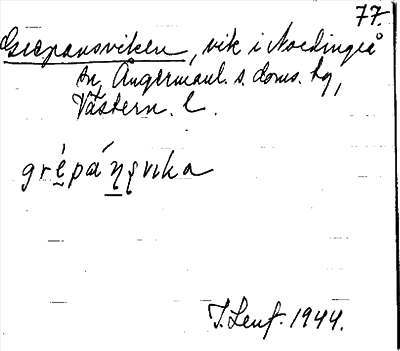 77.
Greepansviken, vik i Nordingrå
sn, Ångermanl. s. doms. hg,
Västern. l.
gre̬pá ŋʂvika
J. Lenf. 1944.